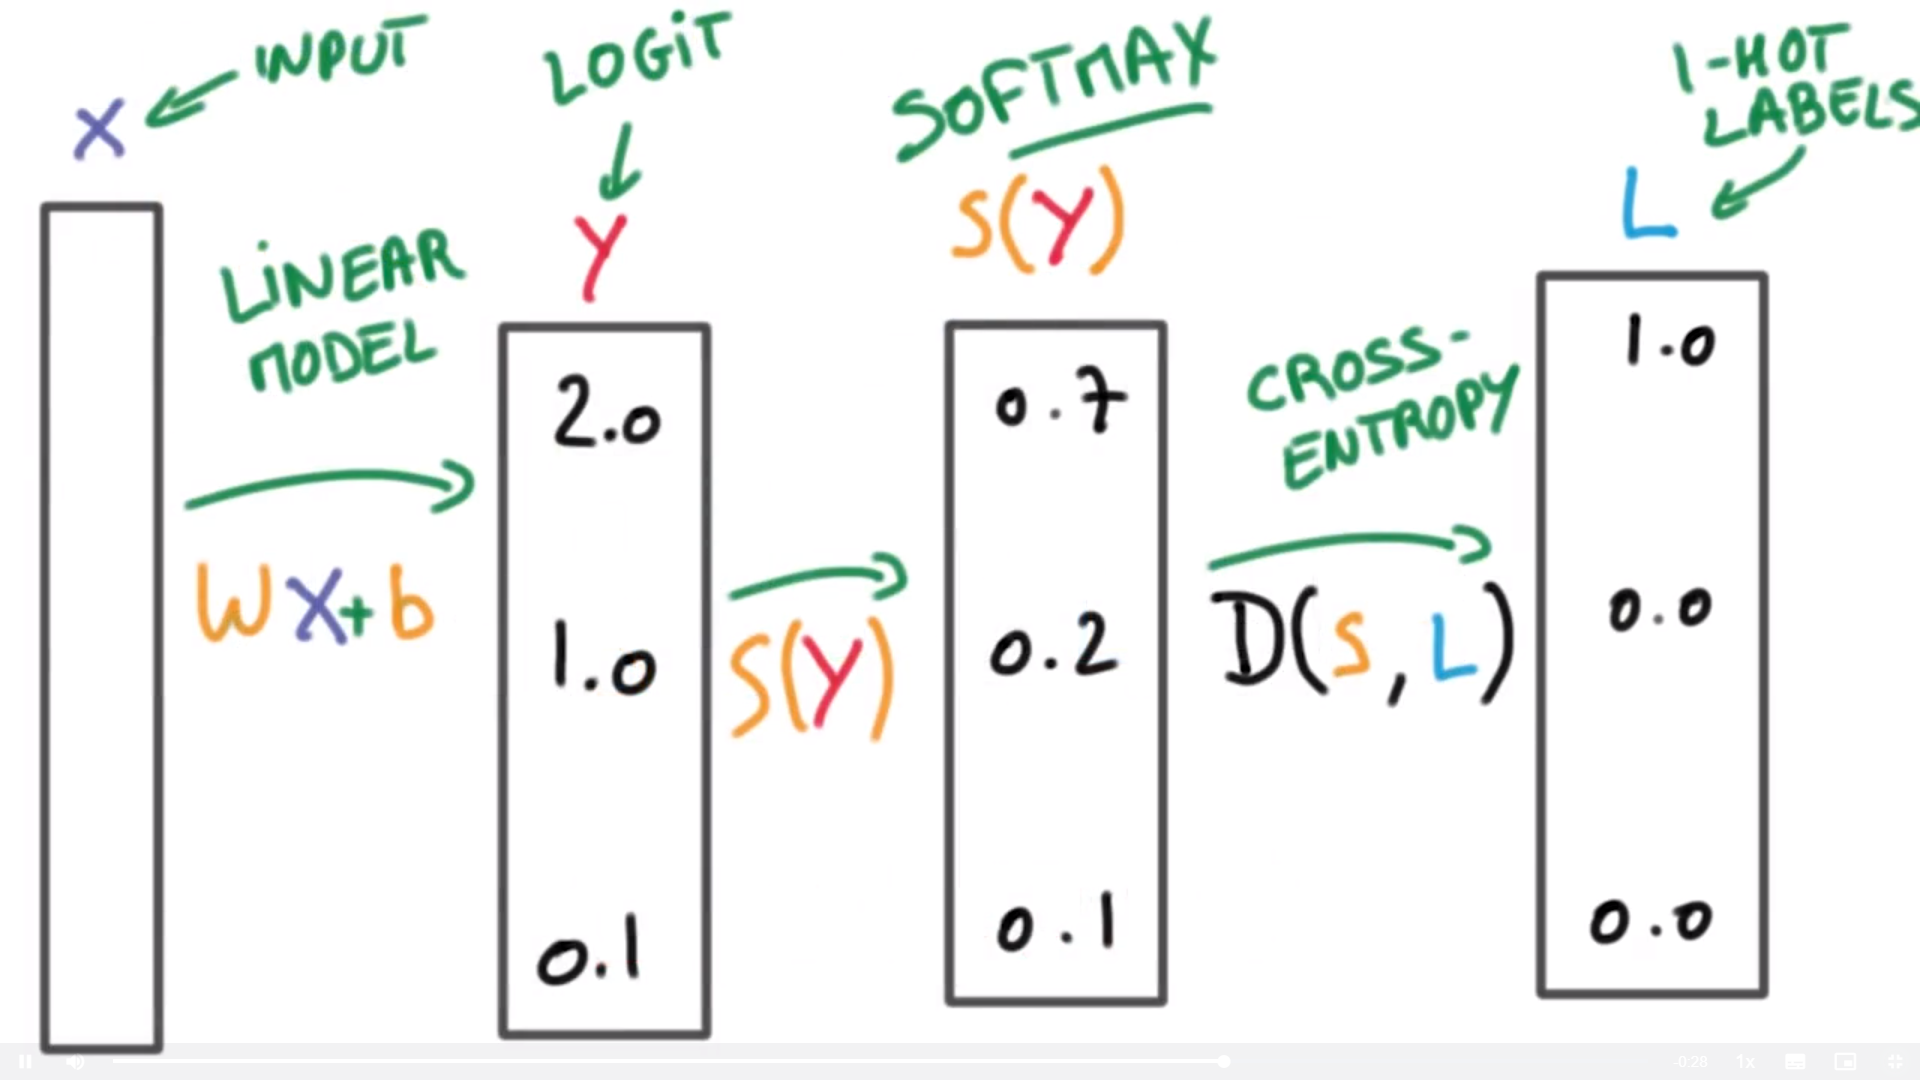 INPUT
X
LINEAR
MODEL
WX+b
LOGIT
Y
2.0
1.0
0.1
S(Y)
SOFTMAX
S(Y)
0.7
0.2
0.1
CROSS-
ENTROPY
D(S,L)
1-HOT
LABELS
L
1.0
0.0
0.0
-0:28
1x